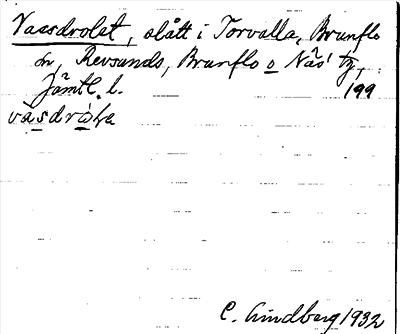 Vassdrolet, slått i Torvalla, Brunflo
sn, Revsunds, Brunflo o Näs' tg,
Jämtl. l. 199
C. Lindberg 1932